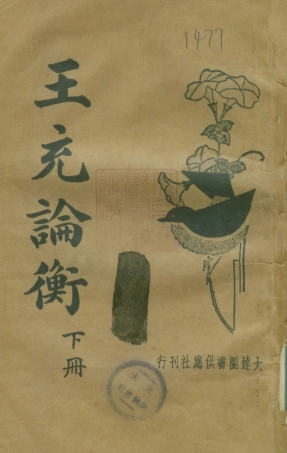 1477
王充論衡
下冊
大達圖書供應社刊行